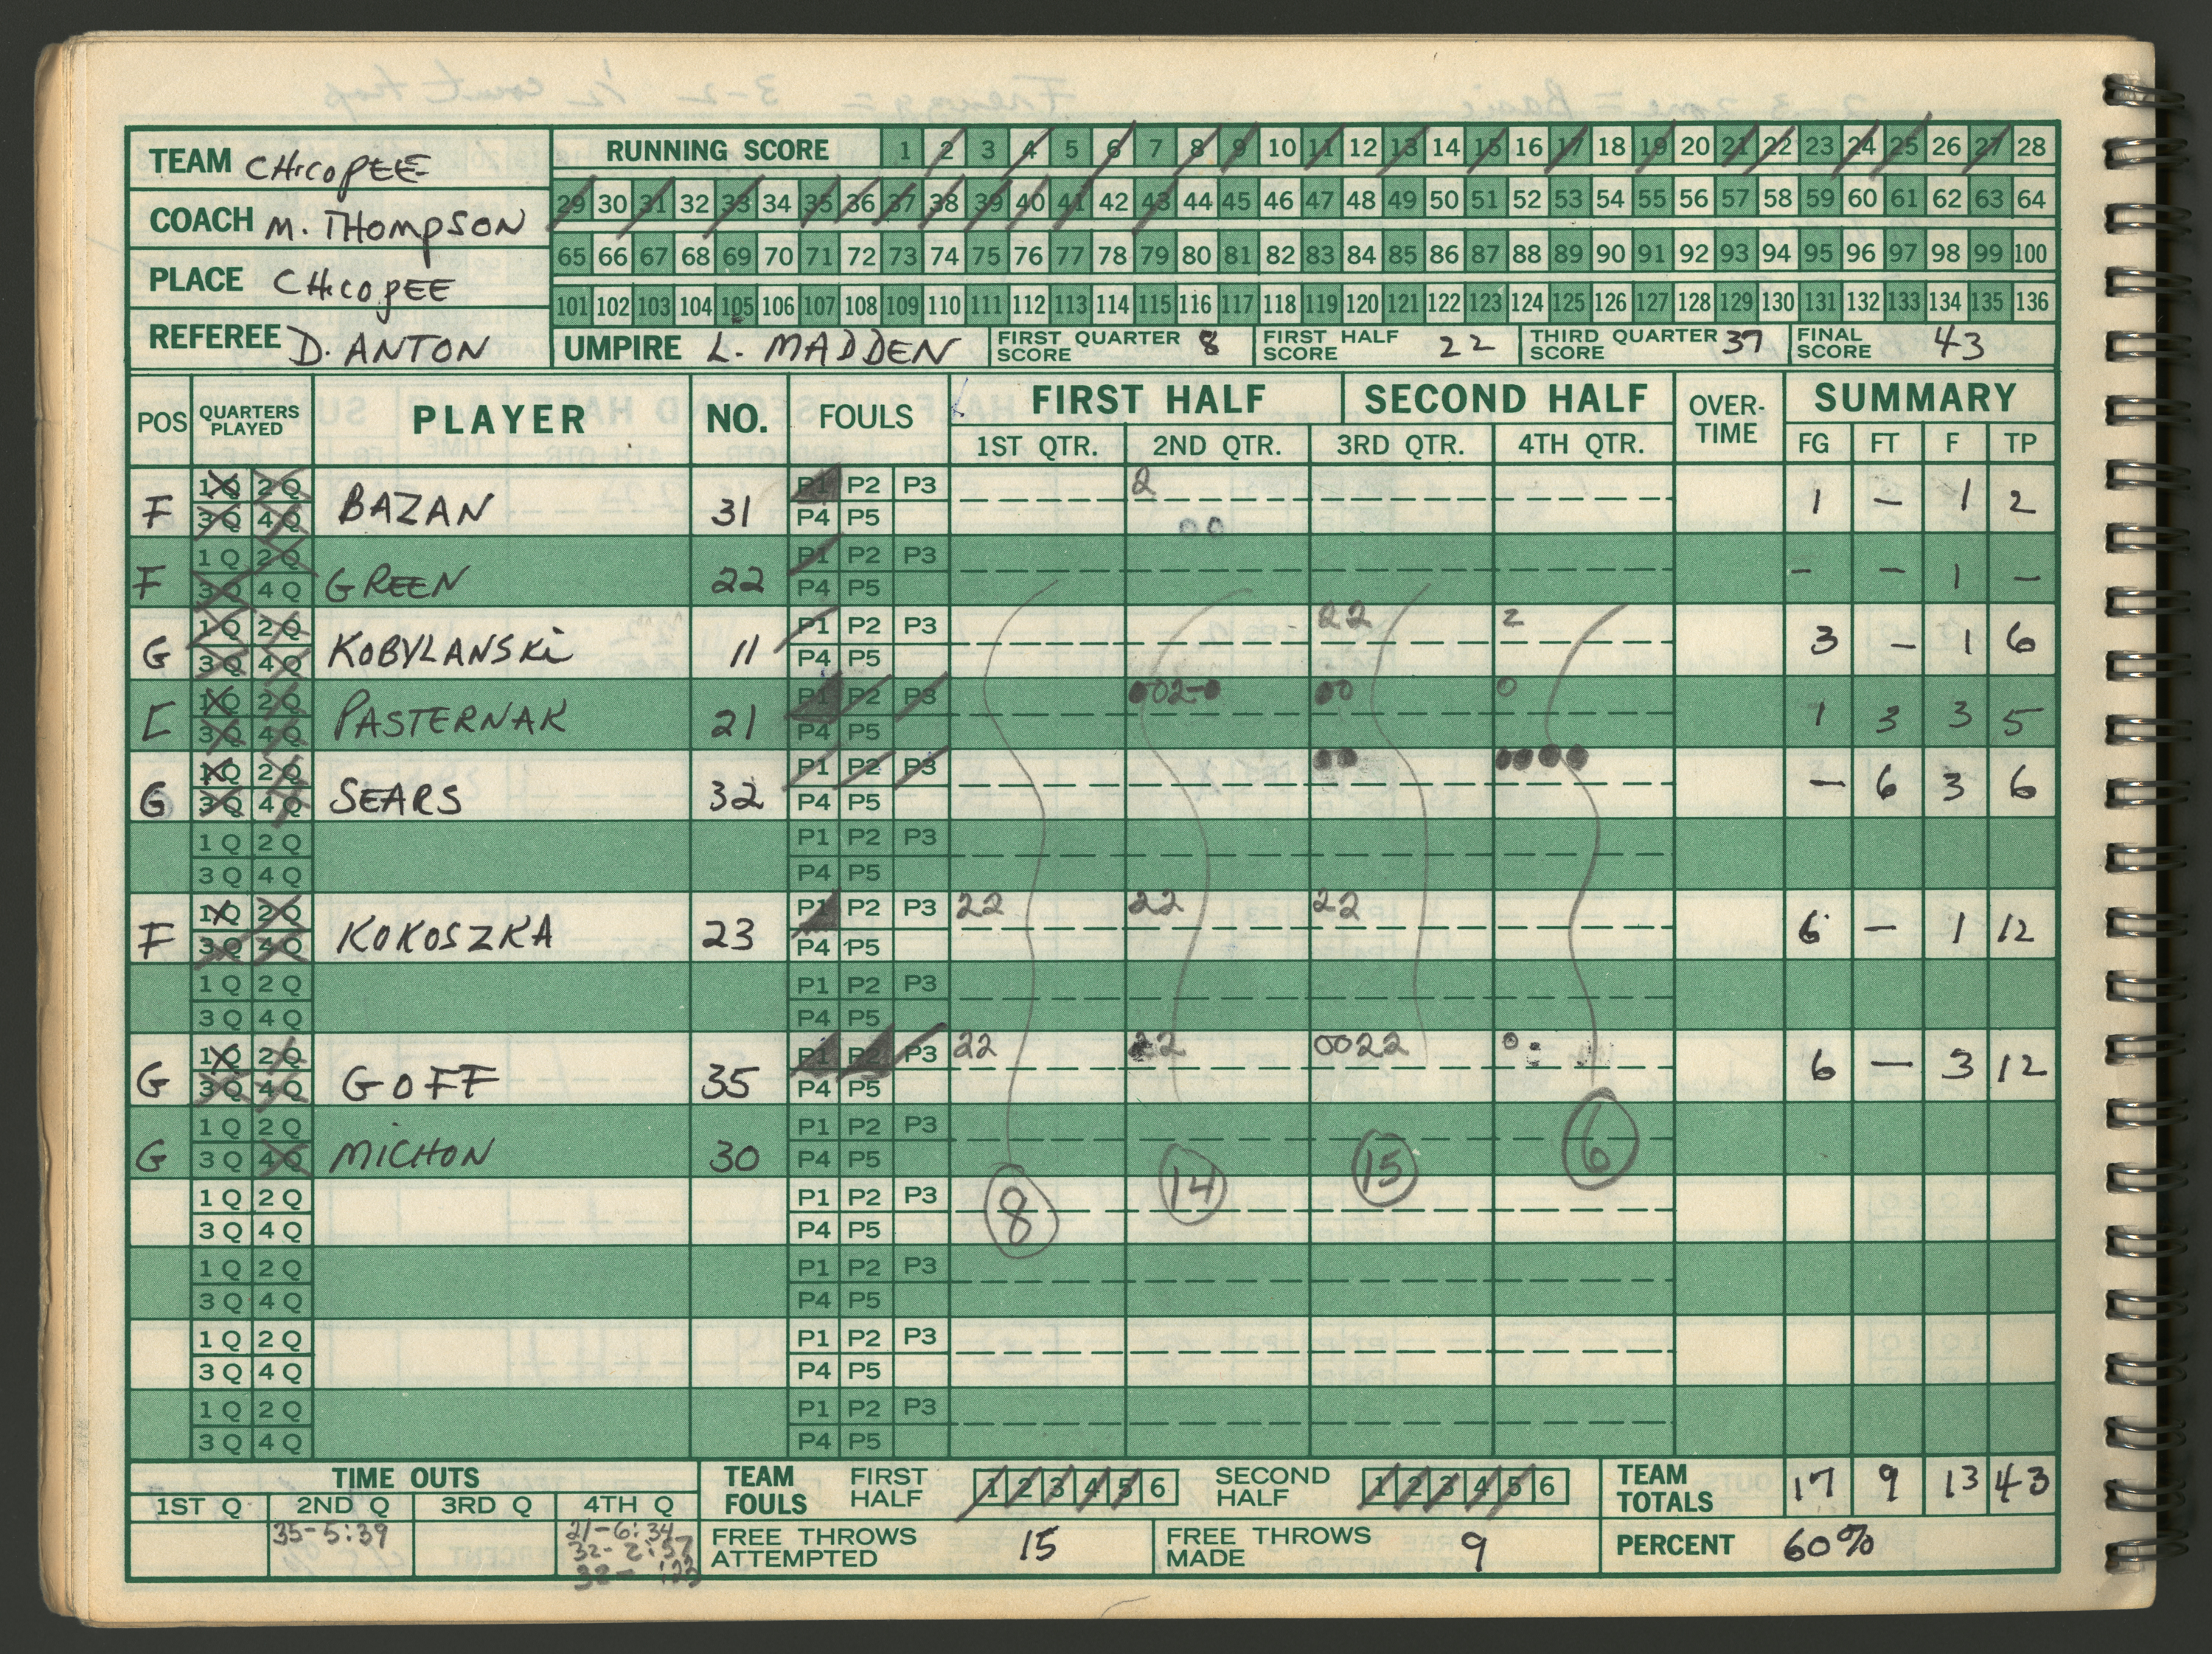 TEAM CHICOPEE
COACH M. THOMPSON
PLACE CHICOPEE
REFEREE D. ANTON
RUNNING SCORE 1 2 3 4 5 6 7 8 9 10 11 12 13 14 15 16 17 18 19 20 21 22 23 24 25 26 27 28
29 30 31 32 33 34 35 36 37 38 39 40 41 42 43 44 45 46 47 48 49 50 51 52 53 54 55 56 57 58 59 60 61 62 63 64
65 66 67 68 69 70 71 72 73 74 75 76 77 78 79 80 81 82 83 84 85 86 87 88 89 90 91 92 93 94 95 96 97 98 99 100
101 102 103 104 105 106 107 108 109 110 111 112 113 114 115 116 117 118 119 120 121 122 123 124 125 126 127 128 129 130 131 132 133 134 135 136
UMPIRE L. MADDEN FIRST QUARTER SCORE 8 FIRST HALF SCORE 22 THIRD QUARTER SCORE 37 FINAL SCORE 43
POS QUARTERS PLAYED PLAYER NO. FOULS FIRST HALF SECOND HALF OVER-TIME SUMMARY
1ST QTR. 2ND QTR. 3RD QTR. 4TH QTR. FG FT F TP
F 1Q 2Q 3Q 4Q BAZAN 31 P1 P2 P3 P4 P5 2 00 1 - 1 2
F 1Q 2Q 3Q 4Q GREEN 22 P1 P2 P3 P4 P5 - - 1 -
G 1Q 2Q 3Q 4Q KOBYLANSKi 11 P1 P2 P3 P4 P5 22 2 3 - 1 6
C 1Q 2Q 3Q 4Q PASTERNAK 21 P1 P2 P3 P4 P5 002-0 00 0 1 3 3 5
G 1Q 2Q 3Q 4Q SEARS 32 P1 P2 P3 P4 P5 00 0000 - 6 3 6
1Q 2Q 3Q 4Q P1 P2 P3 P4 P5
F 1Q 2Q 3Q 4Q KOKOSZKA 23 P1 P2 P3 P4 P5 22 22 22 6 - 1 12
1Q 2Q 3Q 4Q P1 P2 P3 P4 P5
G 1Q 2Q 3Q 4Q GOFF 35 P1 P2 P3 P4 P5 22 22 0022 0 6 - 3 12
G 1Q 2Q 3Q 4Q MICHON 30 P1 P2 P3 P4 P5
8 14 15 6
1Q 2Q 3Q 4Q P1 P2 P3 P4 P5
1Q 2Q 3Q 4Q P1 P2 P3 P4 P5
1Q 2Q 3Q 4Q P1 P2 P3 P4 P5
1Q 2Q 3Q 4Q P1 P2 P3 P4 P5
TIME OUTS
1ST Q 2ND Q 3RD Q 4TH Q
35-5:39
21-6:34
32-2:57
32- :23
TEAM FOULS FIRST HALF 1 2 3 4 5 6 SECOND HALF 1 2 3 4 5 6 TEAM TOTALS 17 9 13 43
FREE THROWS ATTEMPTED 15 FREE THROWS MADE 9 PERCENT 60%